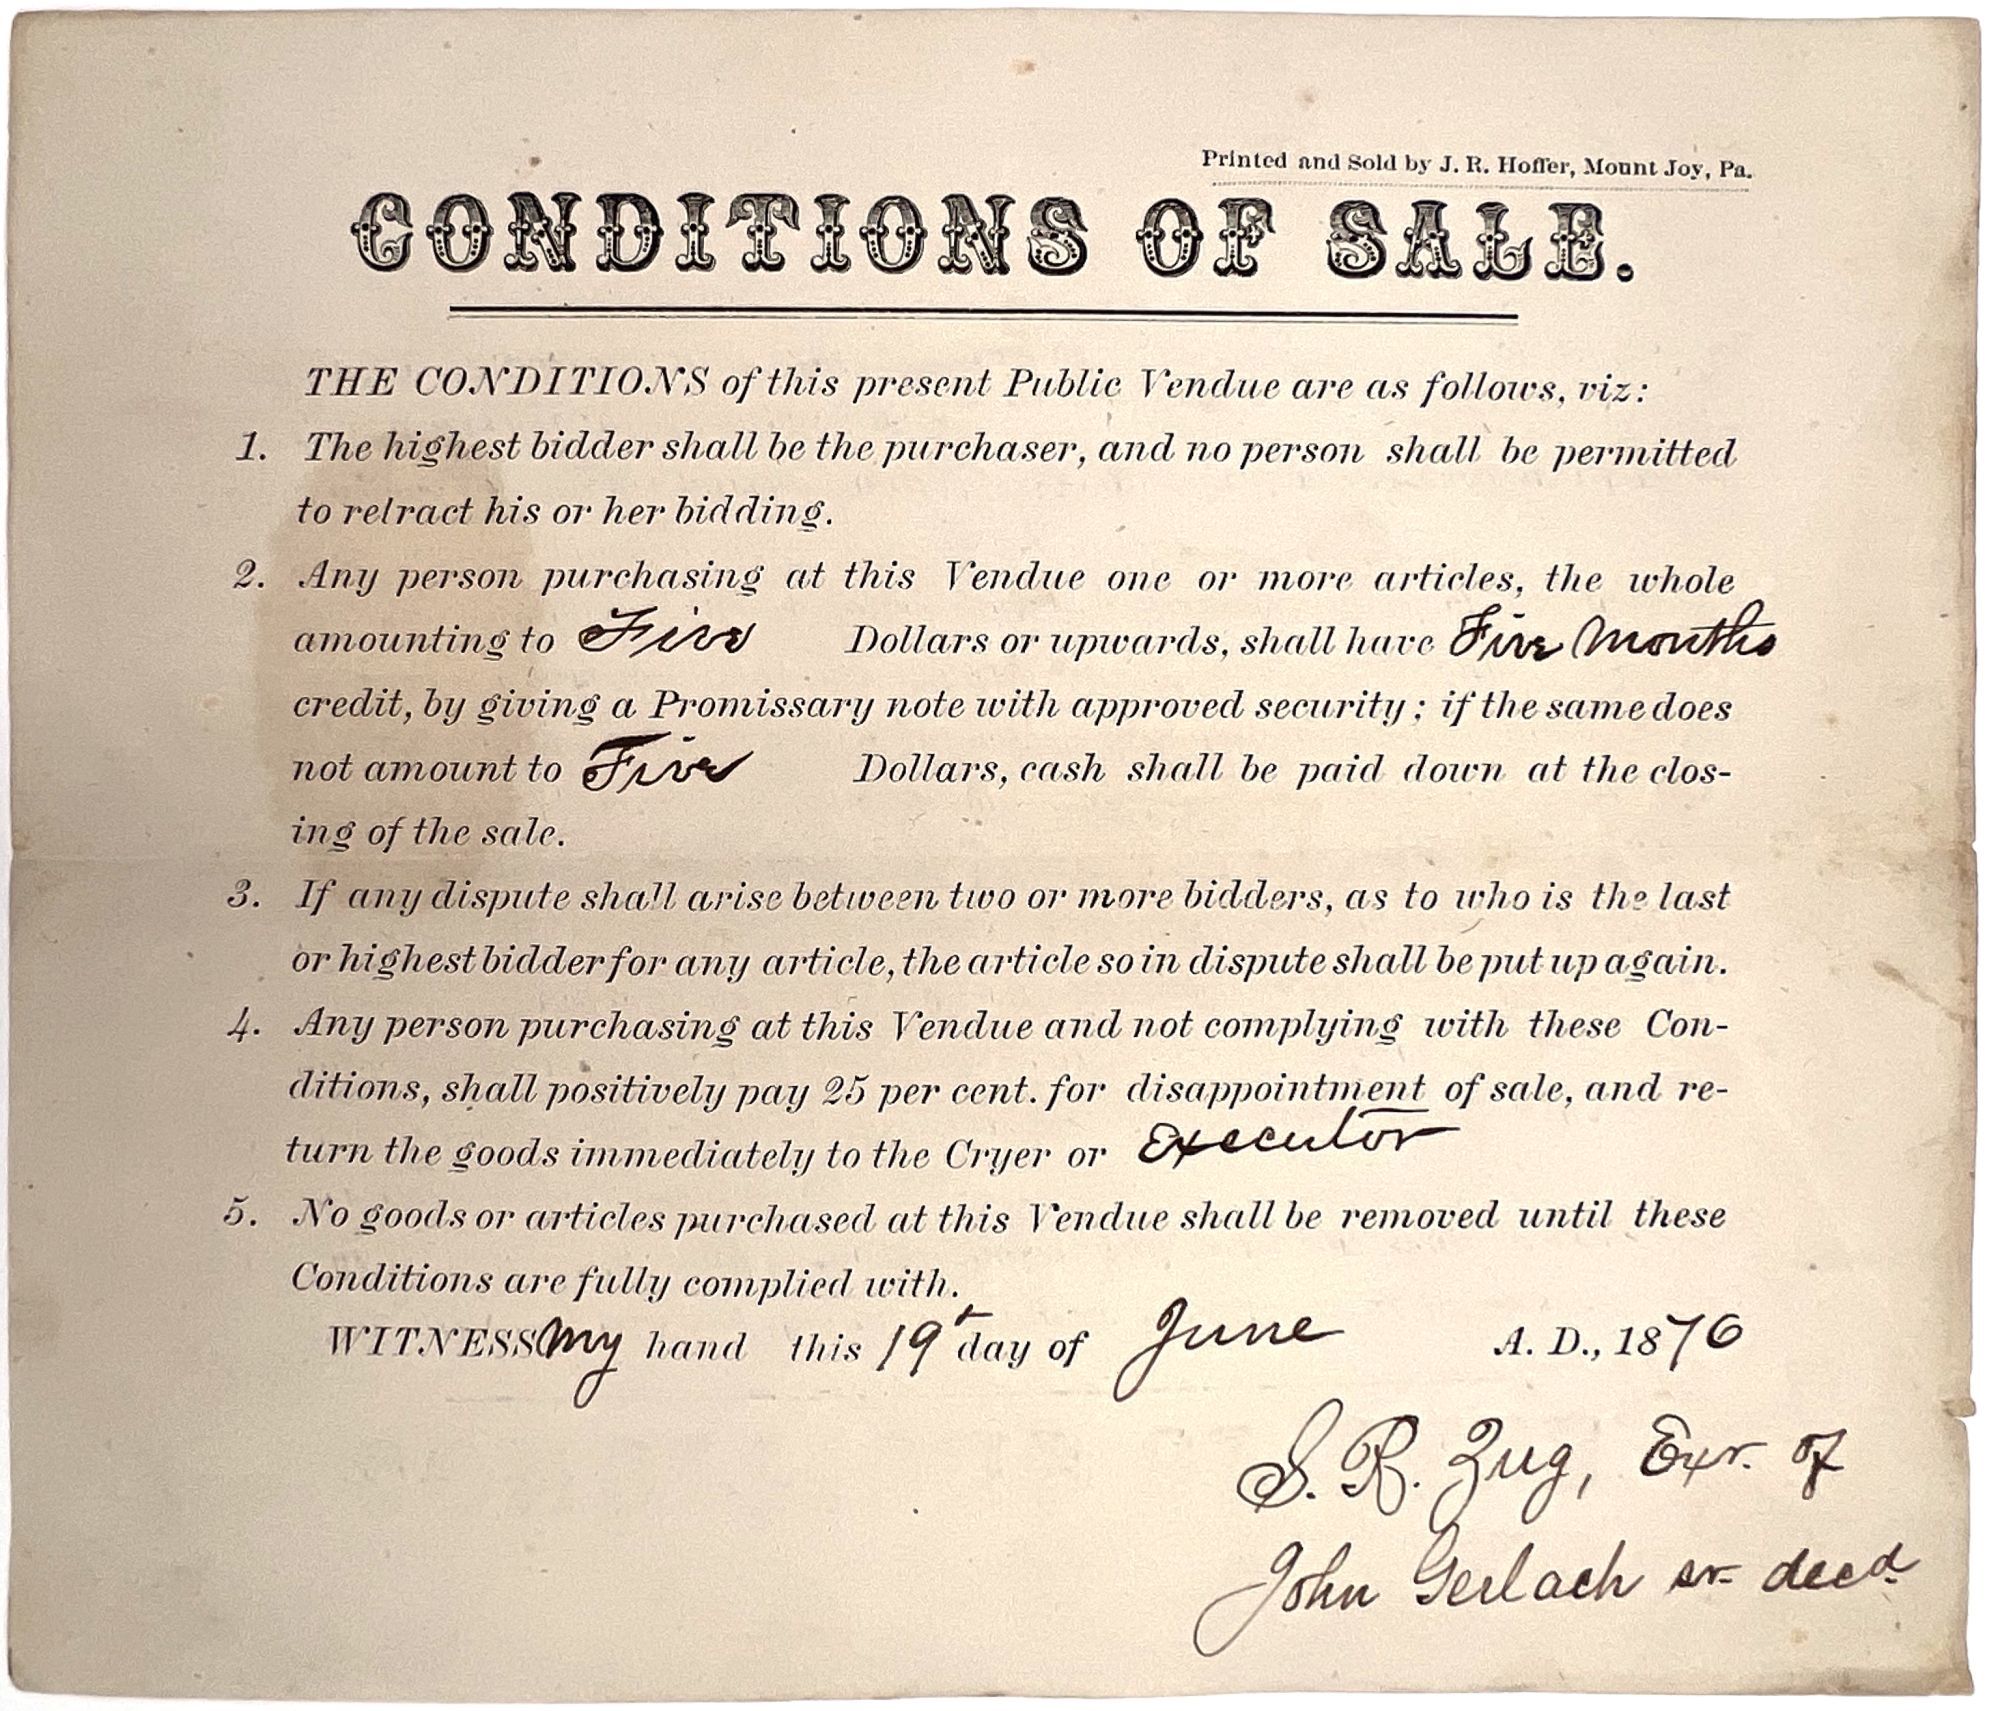 Printed and Sold by J. R. Hoffer, Mount Joy, Pa.
CONDITIONS OF SALE.
THE CONDITIONS of this present Public Vendue are as follows, viz:
1. The highest bidder shall be the purchaser, and no person shall be permitted
to retract his or her bidding.
2. Any person purchasing at this Vendue one or more articles, the whole
amounting to Five Dollars or upwards, shall have Five Months
credit, by giving a Promissary note with approved security; if the same does
not amount to Five Dollars, cash shall be paid down at the clos-
ing of the sale.
3. If any dispute shall arise between two or more bidders, as to who is the last
or highest bidder for any article, the article so in dispute shall be put up again.
4. Any person purchasing at this Vendue and not complying with these Con-
ditions, shall positively pay 25 per cent. for disappointment of sale, and re-
turn the goods immediately to the Cryer or Executor
5. No goods or articles purchased at this Vendue shall be removed until these
Conditions are fully complied with.
WITNESS my hand this 19t day of June A. D., 1876
S. R. Zug, Exr. of
John Gerlach sr decd.